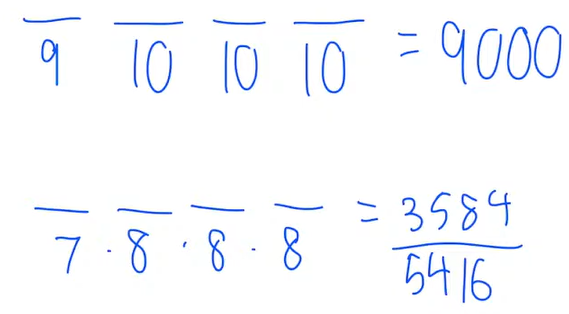 9 10 10 10 = 9000
7 · 8 · 8 · 8 = 3584
5416